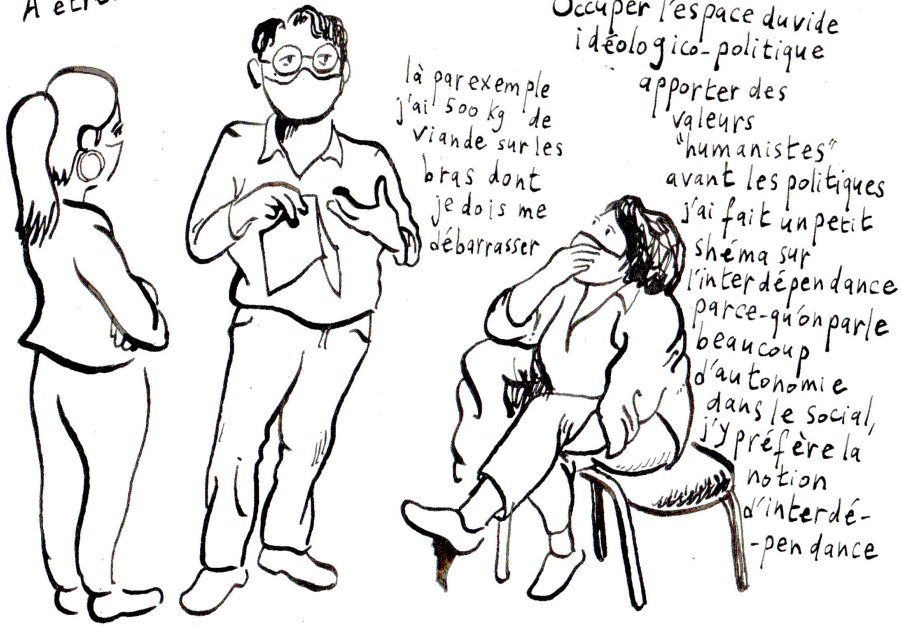 A être
là par exemple
j'ai 500 kg de
viande sur les
bras dont
je dois me
débarrasser
Occuper l'espace du vide
idéologico-politique
apporter des
valeurs
"humanistes"
avant les politiques
j'ai fait un petit
shéma sur
l'interdépendance
parce-qu'on parle
beaucoup
d'autonomie
dans le social,
j'y préfère la
notion
d'interdé-
-pendance